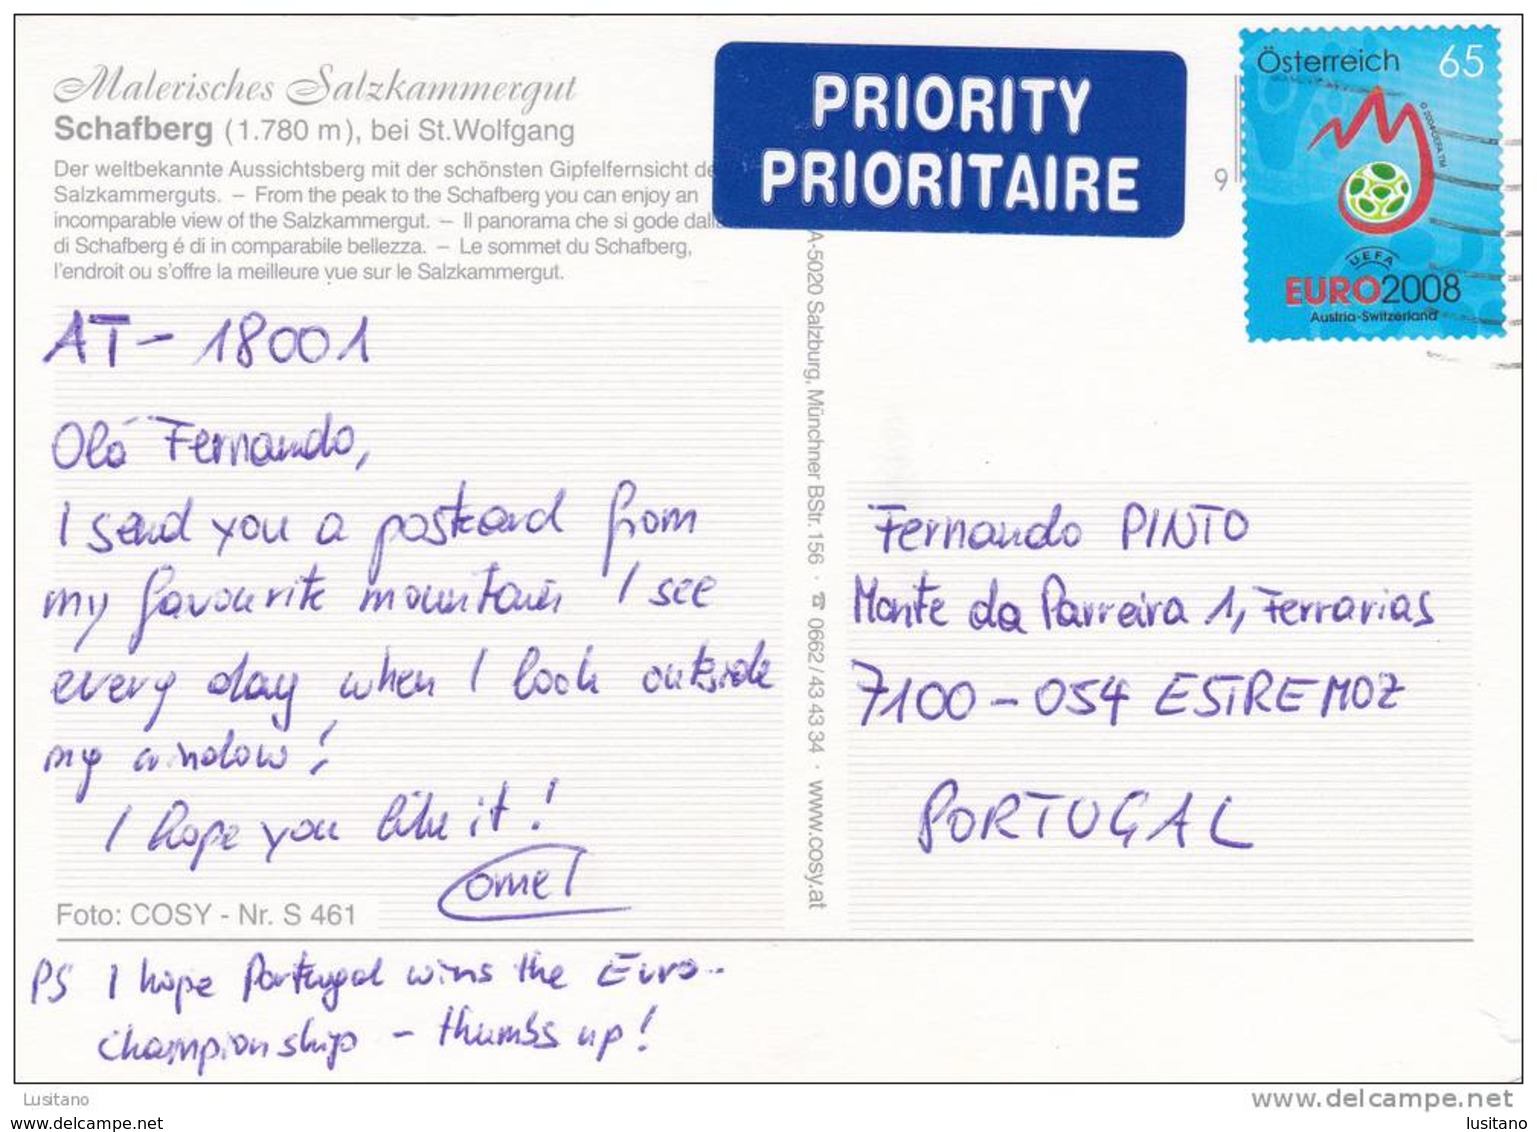 Malerisches Salzkammergut
Schafberg (1.780 m), bei St.Wolfgang
Der weltbekannte Aussichtsberg mit der schönsten Gipfelfernsicht de
Salzkammerguts. – From the peak to the Schafberg you can enjoy an
incomparable view of the Salzkammergut. – Il panorama che si gode dall
di Schafberg é di in comparabile bellezza. – Le sommet du Schafberg,
l'endroit ou s'offre la meilleure vue sur le Salzkammergut.
PRIORITY
PRIORITAIRE
9
Österreich 65
© 2004 UEFA TM
UEFA
EURO2008
Austria-Switzerland
AT- 18001
Olá Fernando,
I send you a postcard from
my favourite mountain I see
every day when I look outside
my window!
I hope you like it!
Foto: COSY - Nr. S 461
PS I hope Portugal wins the Euro-
championship - thumbs up!
A-5020 Salzburg, Münchner BStr. 156 · ☎ 0662/43 43 34 · www.cosy.at
Fernando PINTO
Monte da Parreira 1, Ferrarias
7100-054 ESTREMOZ
PORTUGAL
Lusitano
www.delcampe.net
www.delcampe.net
lusitano